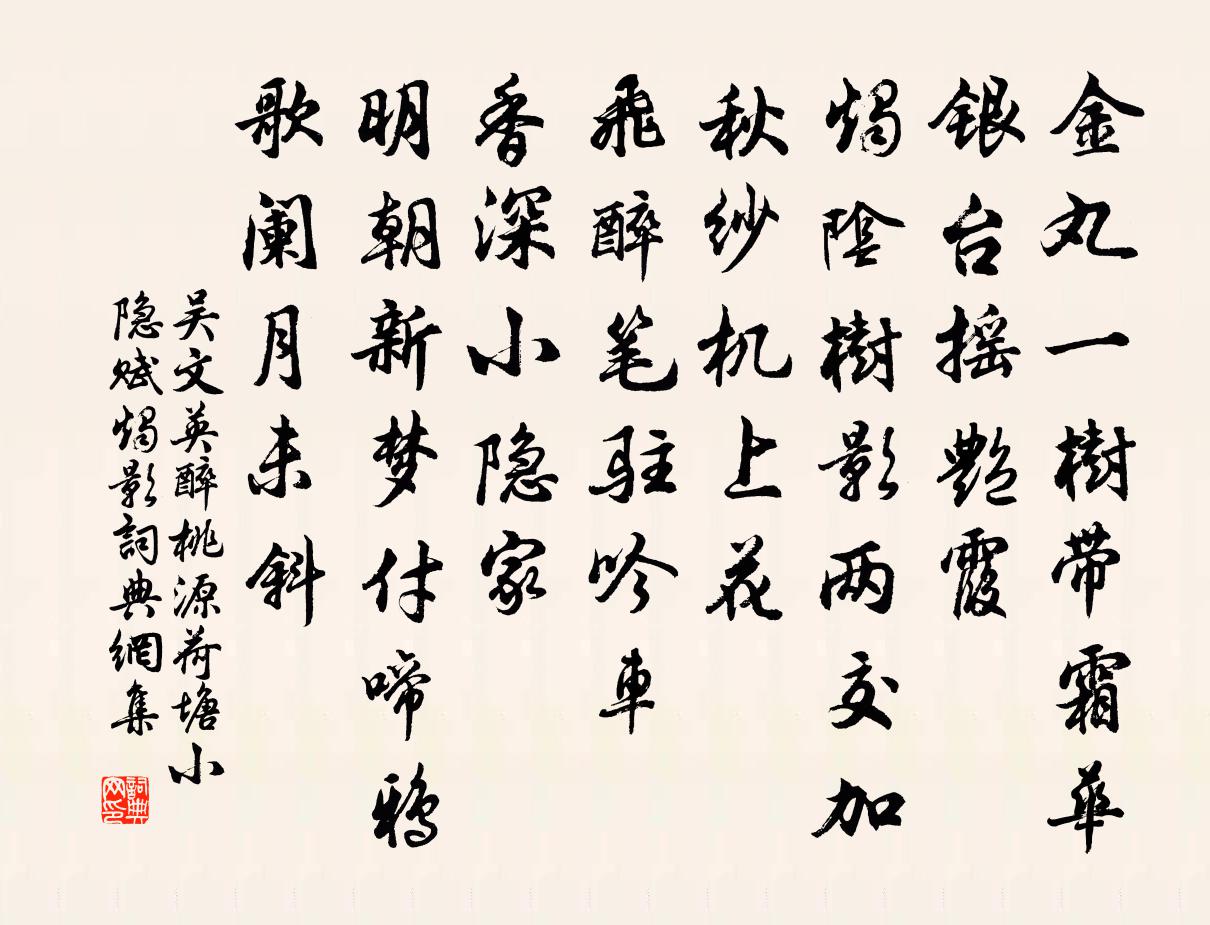 金丸一樹带霜華
銀台摇艶霞
燭陰樹影两交加
秋纱机上花
飛醉笔驻吟車
香深小隐家
明朝新梦付啼鴉
歌阑月未斜
吴文英醉桃源荷塘小
隐赋燭影詞典網集
詞典网印